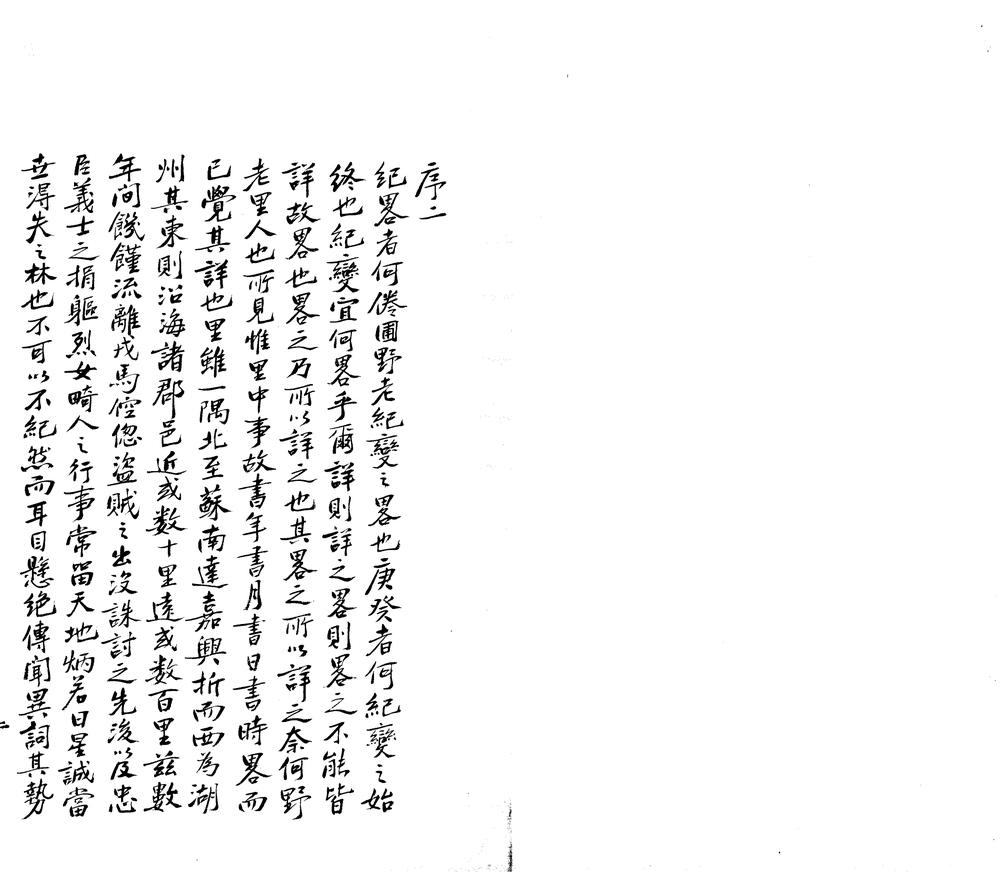 序二
紀畧者何倦圃野老紀變之畧也庚癸者何紀變之始
終也紀變宜何畧乎爾詳則詳之畧則畧之不能皆
詳故畧也畧之乃所以詳之也其畧之所以詳之奈何野
老里人也所見惟里中事故書年書月書日書時畧而
已覺其詳也里雖一隅北至蘇南達嘉興折而西為湖
州其東則沿海諸郡邑近或数十里遠或数百里茲數
年间饑饉流離戎馬倥偬盜賊之出没誅討之先後以及忠
臣義士之捐軀烈女畸人之行事常留天地炳若日星誠當
世得失之林也不可以不紀然而耳目懸绝傳聞異詞其勢
二